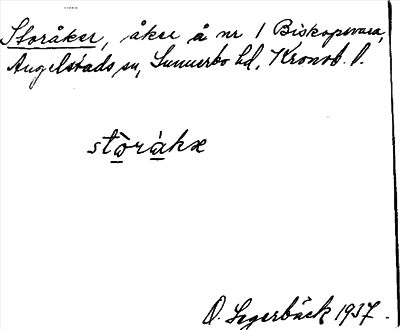 Storåker, åker å nr 1 Biskopsvara,
Angelstads sn, Sunnerbo hd, Kronob. l.
stòràkæ
O. Segerbäck 1937.